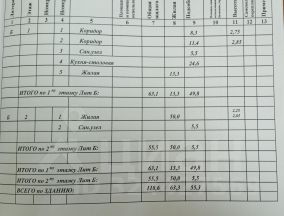 Этаж
Общая
Жилая
1 2 3 4 5 6 7 8 9 10 11 12 13
1 1 Коридор 8,3 2,75
2 Коридор 11,4 2,85
3 Санузел 5,5
4 Кухня-столовая 24,6
5 Жилая 13,3
ИТОГО по 1 этажу Лит Б: 63,1 13,3 49,8
Б 2 1 Жилая 50,0
2 Санузел 5,5
ИТОГО по 2 этажу Лит Б: 55,5 50,0 5,5
ИТОГО по 1 этажу Лит Б: 63,1 13,3 49,8
ИТОГО по 2 этажу Лит Б: 55,5 50,0 5,5
ВСЕГО по ЗДАНИЮ: 118,6 63,3 55,3